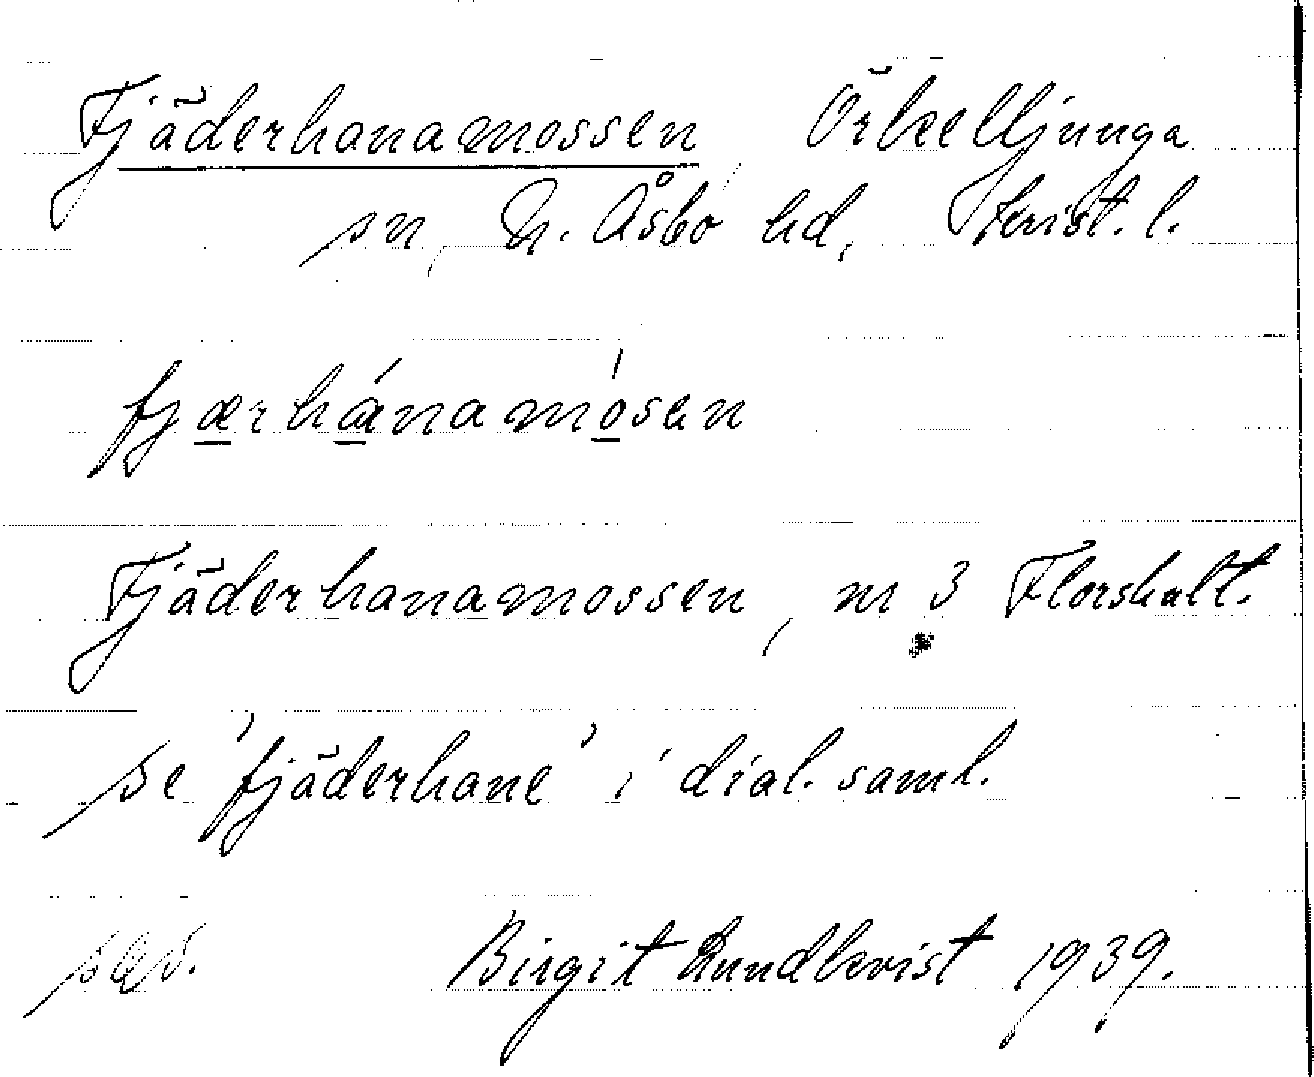 Fjäderhanamossen, Örkelljunga
sn, N. Åsbo hd, Krist. l.
fjærhánamósen
Fjäderhanamossen, m 3 Florshult.
se 'fjäderhane' i dial. saml.
Birgit Rundkvist 1939.